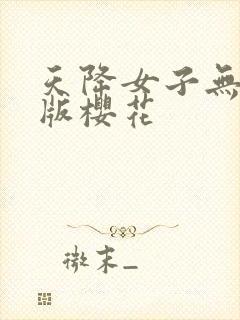 天降女子無
版櫻花
微末_